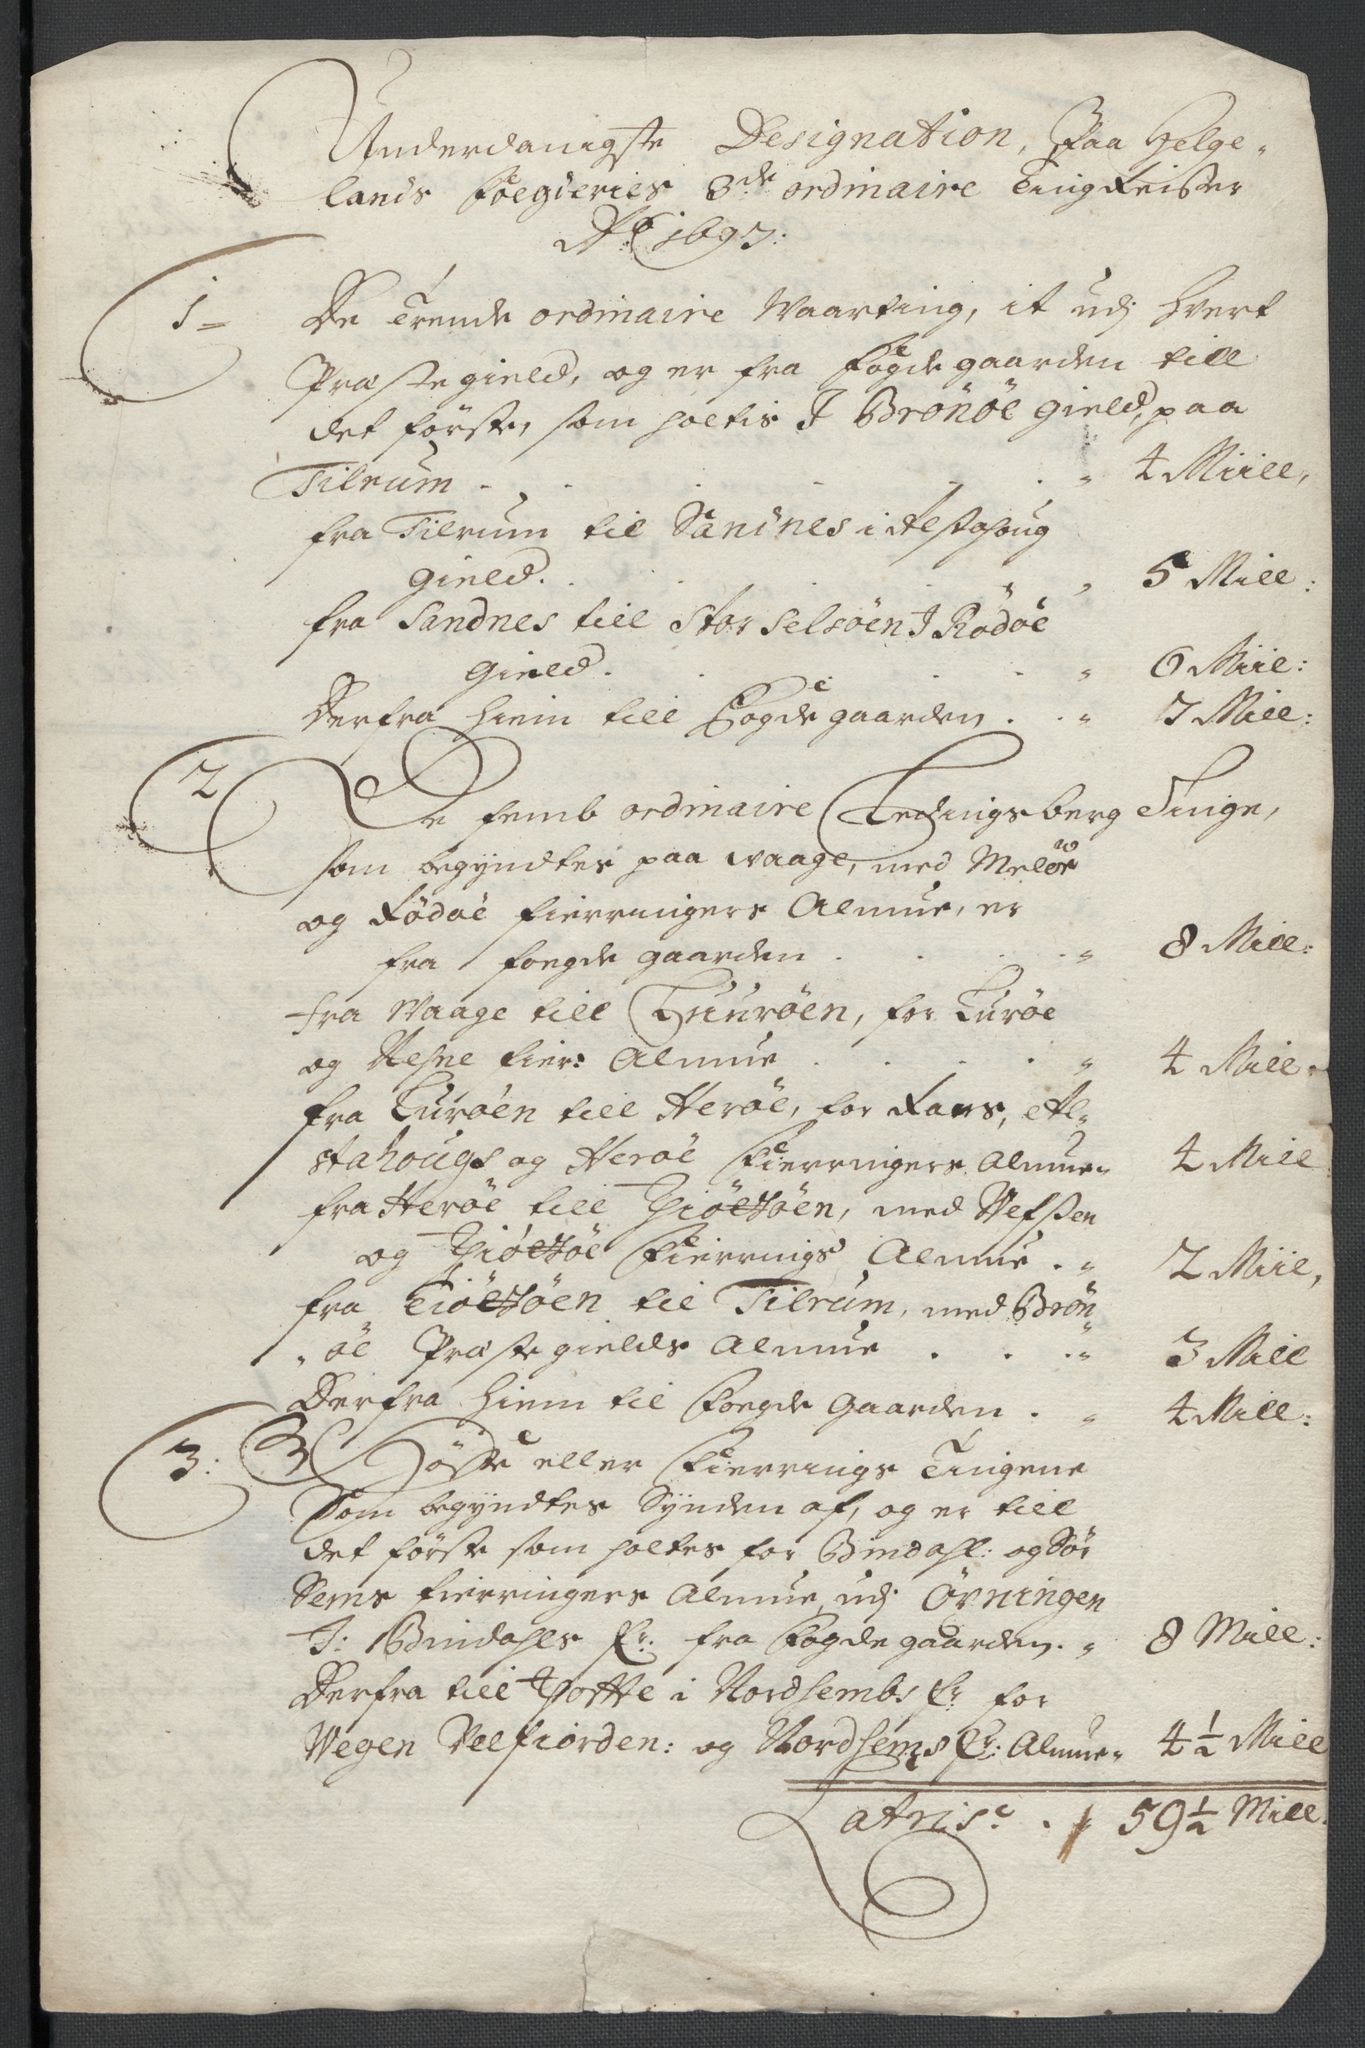 Underdanigste Designation, Paa Helge-
lands Foegderies 3de ordinaire Ting Reiser
Ao 1697:
1 De Trende ordinaire Waarting, it udj hvert
Præstegield, og er fra Fogde gaarden till
det første, som holtis J Brønøe gield, paa
Tilrum . . . . . " 4 Miill,
fra Tilrum til Sandnes i Alstahoug
gield. . . . " , 5 Miil:
fra Sandnes till Stor Selsøen J Rødøe
gield. . . . . " 6 Miil:
Derfra hiem till Fogde gaarden . . " 7 Miil:
2 De femb ordinaire Ledingsberg Tinge,
som begyndtes paa Waage, med Meløe
og Rødøe fierringers Almue, er
fra foegde gaarden . . . . " 8 Miil:
fra Waage till Luurøen, for Lurøe
og Nesne fier: Almue . . . . " 4 Miil
fra Lurøen till Herøe, for Rans, Al-
stahougs og Herøe Fierringers Almue " 4 Miil
fra Herøe till Thiøttøen, med Vefsen
og Thiøttøe Fierrings Almue . " 2 Miil,
fra Tiøttøen til Tilrum, med Brøn
" øe Præstegields Almue . . . " 3 Miil
Derfra hiem til Foegde Gaarden . " 4 Miil:
3: Høste eller Fierrings Tingene
som begyndtes Synden af, og er till
det første som holtes for Bindahl: og Sør
Sems fierringers Almue, udj Øvningen
J: Bindahls Fr: fra Fogde gaarden. " 8 Miil:
Derfra till Thofte i Nordsembs Fr: for
Wegen Velfiorden: og Nordsems Fr: Almue " 4½ Miil
Latris: . 59½ Miil.